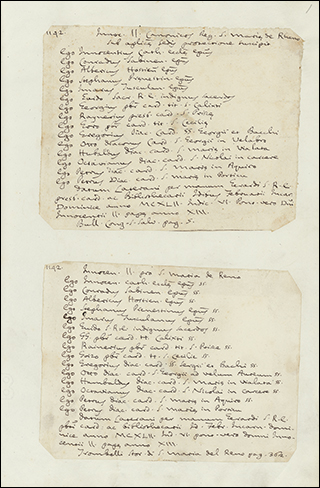 1142
Innoc. II Canonicos Reg. S. Marię de Rheno
sub aplicę sedis protectione suscipit
Ego Innocentius Cath. eccle
Ego Conradus Sabinen.
Ego Albericus Hostien
Ego Stephanus Prenestin
Ego Imarus Tusculan.
Ego Guido Sacr. R. E. indignus sacerdos
Ego Georgius pbr card. tit. S. Calixti
Ego Raynerius presb. card.
Ego Goizo pbr card. tit. S. Cecilię
Ego Gregorius Diac. Card. SS. Sergii et Bacchi
Ego Otto Diaconus Card. S. Georgii in Velabro
Ego Hubaldus Diac. card. S. Marię in Vialata
Ego Octavianus diac. card. S. Nicolai in carcere
Ego Petrus diac. card. S. Marię in Aquiro
Ego Petrus Diac. card. S. Marię in Porticu
Datum Laterani per manum Gerardi S. R. E.
presb. card. ac Bibliothecarii Februarii Incar.
Dominicę anno MCXLII. Indic. VI. Pont. vero Dni
Innocentii II. papę anno XIII.
Bull. Cong. S. Salv. pag. 5.
1142
Innocen. II pro S. Maria de Reno
Ego Innocen. Cath. eclę ss.
Ego Conradus Sabinen ss.
Ego Albericus Hostien ss.
Ego Stephanus Prenestinus ss.
Ego Imarus Tusculanus ss.
Ego Guido S. R. E. indignus sacerdos ss.
Ego pbr card. tt. S. Calixti
Ego Rainerius pbr card. tt. S.
Ego Goizo pbr card. tt. S. Cecilię ss.
Ego Gregorius diac. card. SS. Sergii et Bachi ss.
Ego Otto diac. card. S. Georgii ad velum aureum ss.
Ego Humbaldus diac. card. S. Marię in vialata ss.
Ego Octavianus diac. card. S. Nicolai in carcere ss.
Ego Petrus diac. card. S. Marię in Aquiro ss.
Ego Petrus diac. card. S. Marię in Porticu
Datum Laterani per manum Gerardi S. R. E.
pbri card. ac Bibliothecarii Feb. Incarn. domi-
nicę anno MCXLII Ind. VI pont. vero domni Inno-
centii II papę anno XIII
Trombelli Stor. di S. Maria del Reno pag. 362.